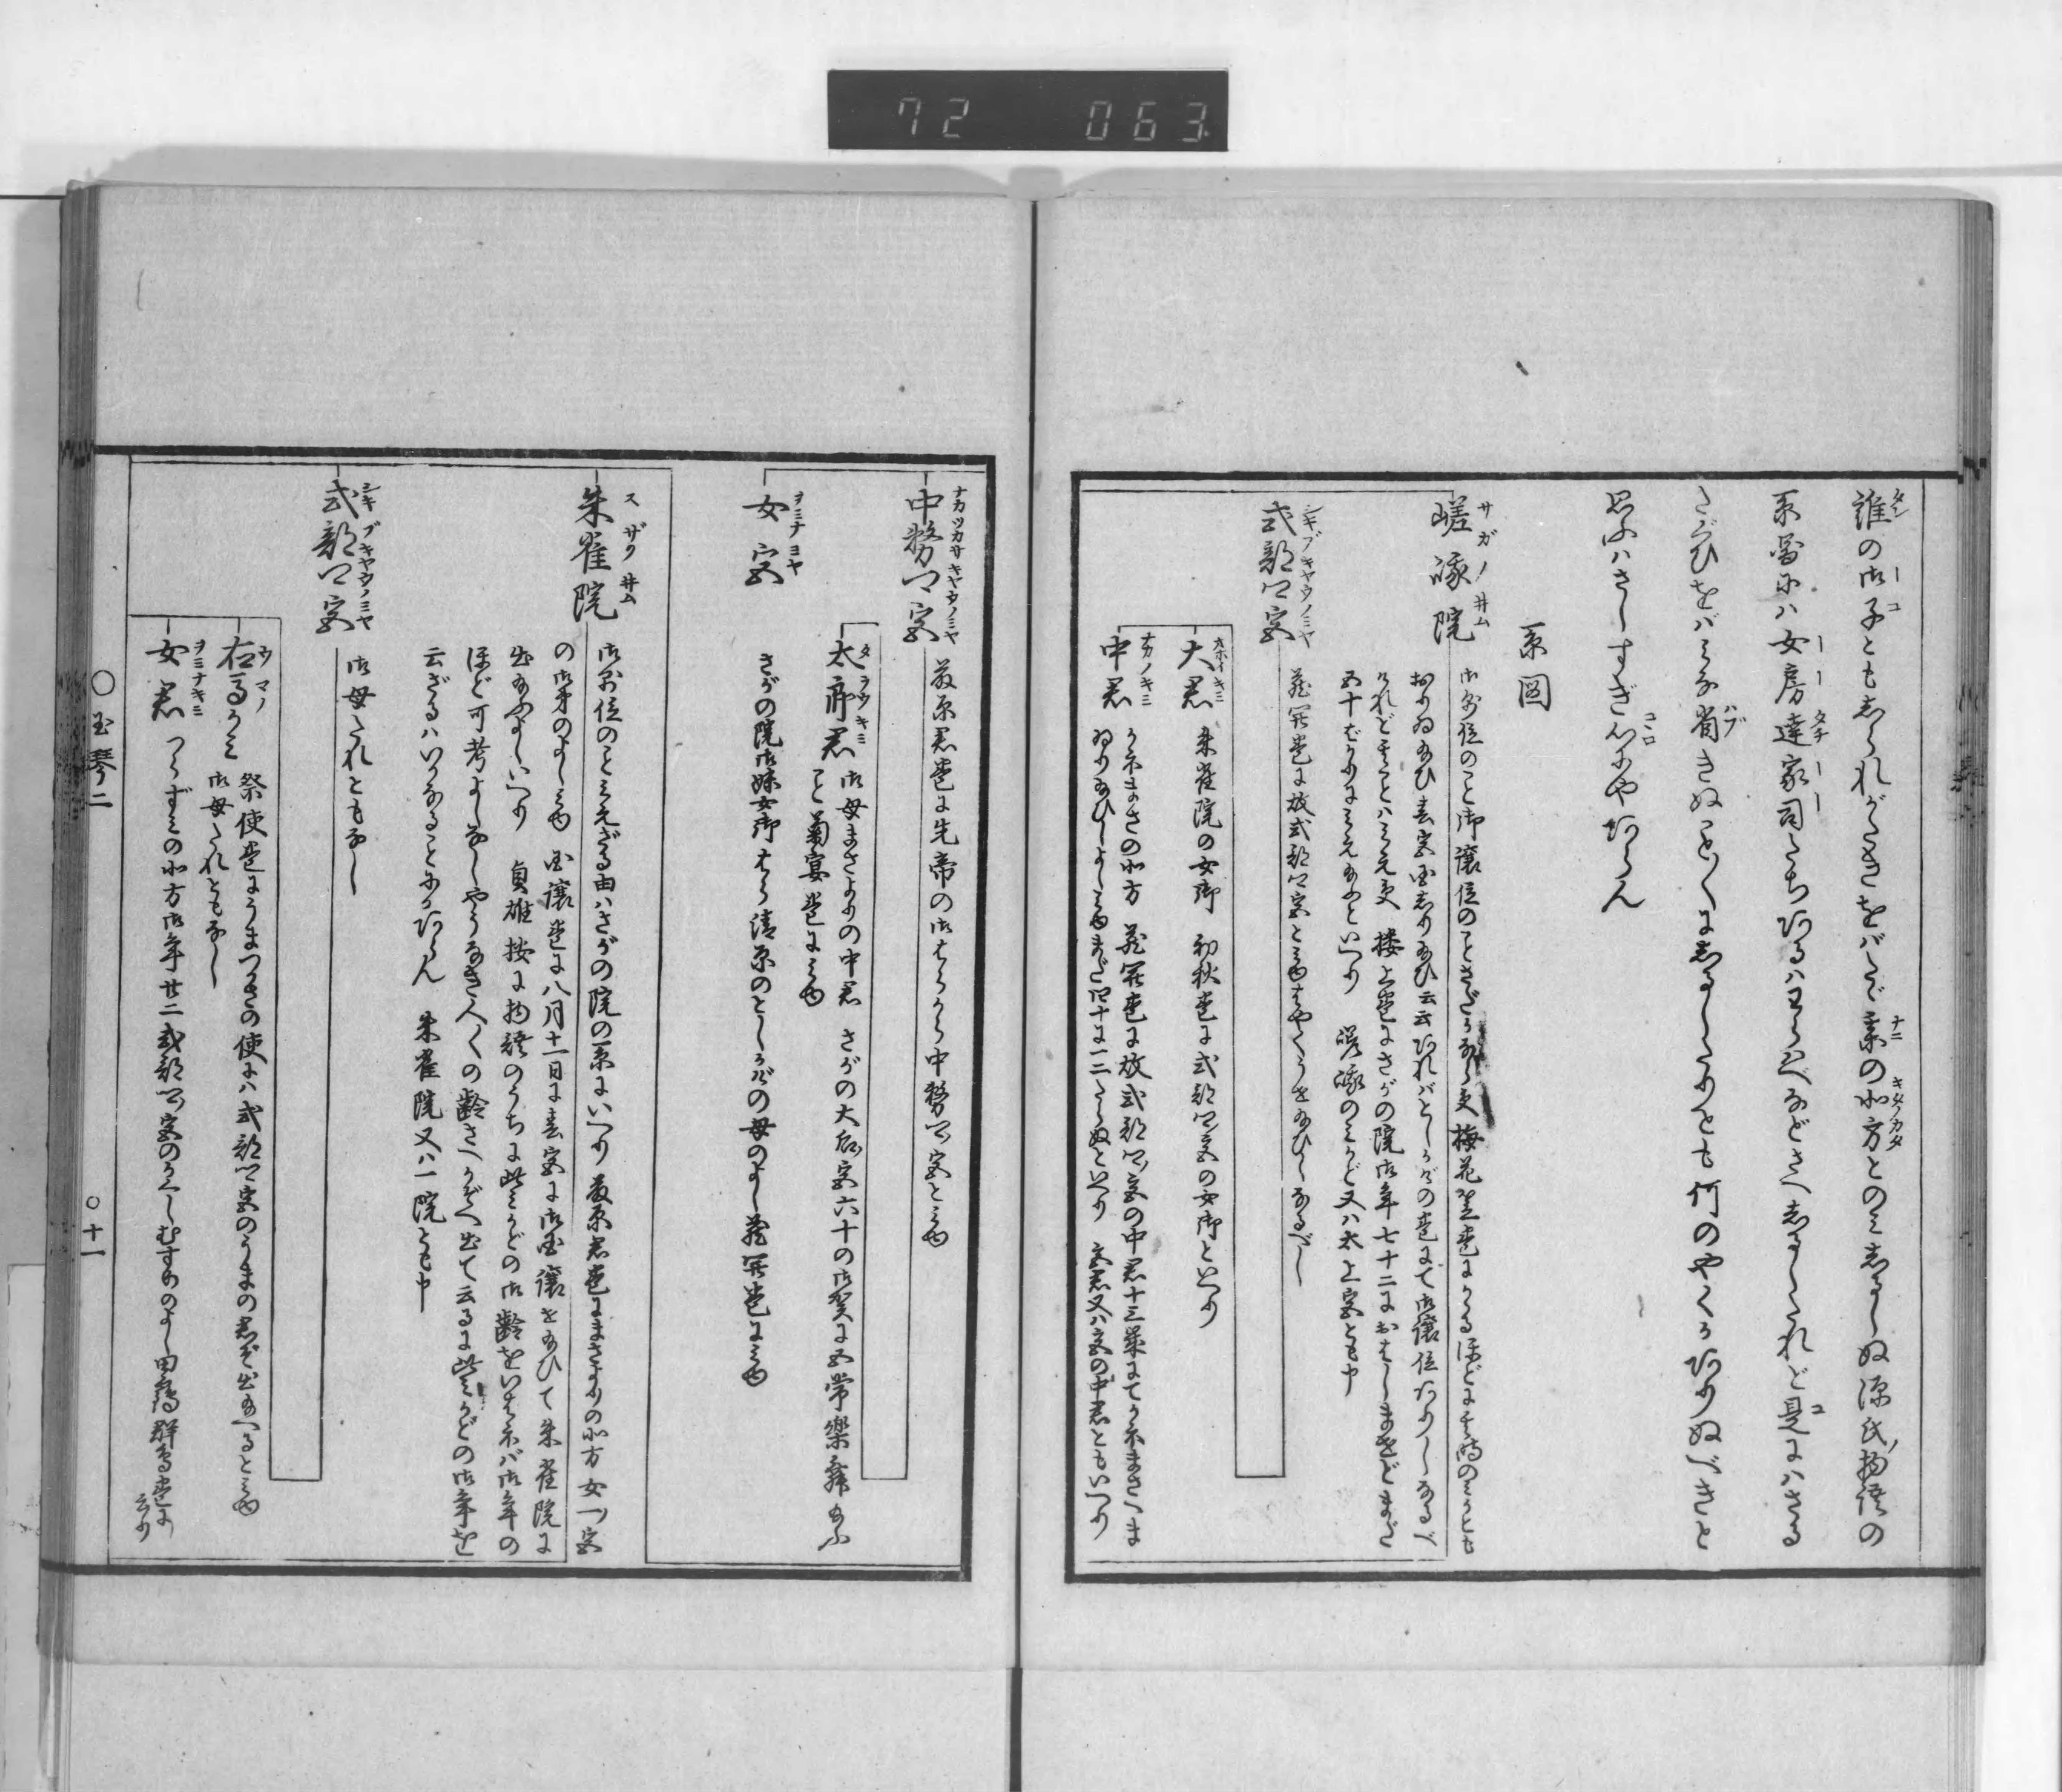 72 063
誰の御子ともしられがたきをバたゞ某の北方とのミしるしぬ源氏物語の
系図にハ女房達家司たちあるハわらべなどさへしるしたれど是にハさる
たぐひをバミな省きぬことくにしるしたりとも何のやくかありぬべきと
思ふハさしすぎ心にやあらん
系図
嵯峨院
御即位のこと御譲位のことさだかならず梅花笠巻にかゝるほどに其時のミかとも
おりゐ給ひ春宮国しり給ひ云云あれバとしかげの巻にて御譲位ありしなるべ
けれど其ことハミえず 楼上巻にさがの院御年七十二におはしませどまだ
五十ばかりにミえ給ふといへり 嵯峨のミかど又ハ太上宮とも申
式部卿宮
蔵開巻に故式部卿宮とミゆはやくうせ給ひしなるべし
大君
朱雀院の女御 初秋巻に式部卿宮の女御といへり
中君
かねまさの北方 蔵開巻に故式部卿宮の中君十三歳にてかねまさにま
ゐり給ひしよしミゆまだ四十に一二たらぬといへり 宮君又ハ宮の中君ともいへり
中務卿宮
藤原君巻に先帝の御はらから中務卿宮とミゆ
太郎君
御母まさよりの中君 さがの大后宮六十の御賀に五常楽舞給ふ
こと菊宴巻にミゆ
女宮
さがの院御妹女御はら清原のとしかげの母のよし蔵開巻にミゆ
朱雀院
御即位のことミえざる由ハさがの院の系にいへり 藤原君巻にまさよりの北方女一宮
の御弟のよしミゆ 国譲巻に八月十一日に春宮に御国譲を給ひて朱雀院に
出給ふよしいへり 貞雄按に物語のうちに此ミかどの御齢をいはねバ御年の
ほど可考よしなしやうなき人〱の齢さへかぞへ出て云るに此ミかどの御年を
云ざるハいかなることにかあらん 朱雀院又ハ一院とも申
式部卿宮
御母たれともなし
右馬かミ
祭使巻にうまつかさの使にハ式部卿宮のうまの君ぞ出給へるとミゆ
御母たれともなし
女君
つゝずミの北方御年廿二式部卿宮のかくしむすめのよし田鶴群鳥巻に
云り
○玉琴二
○十一